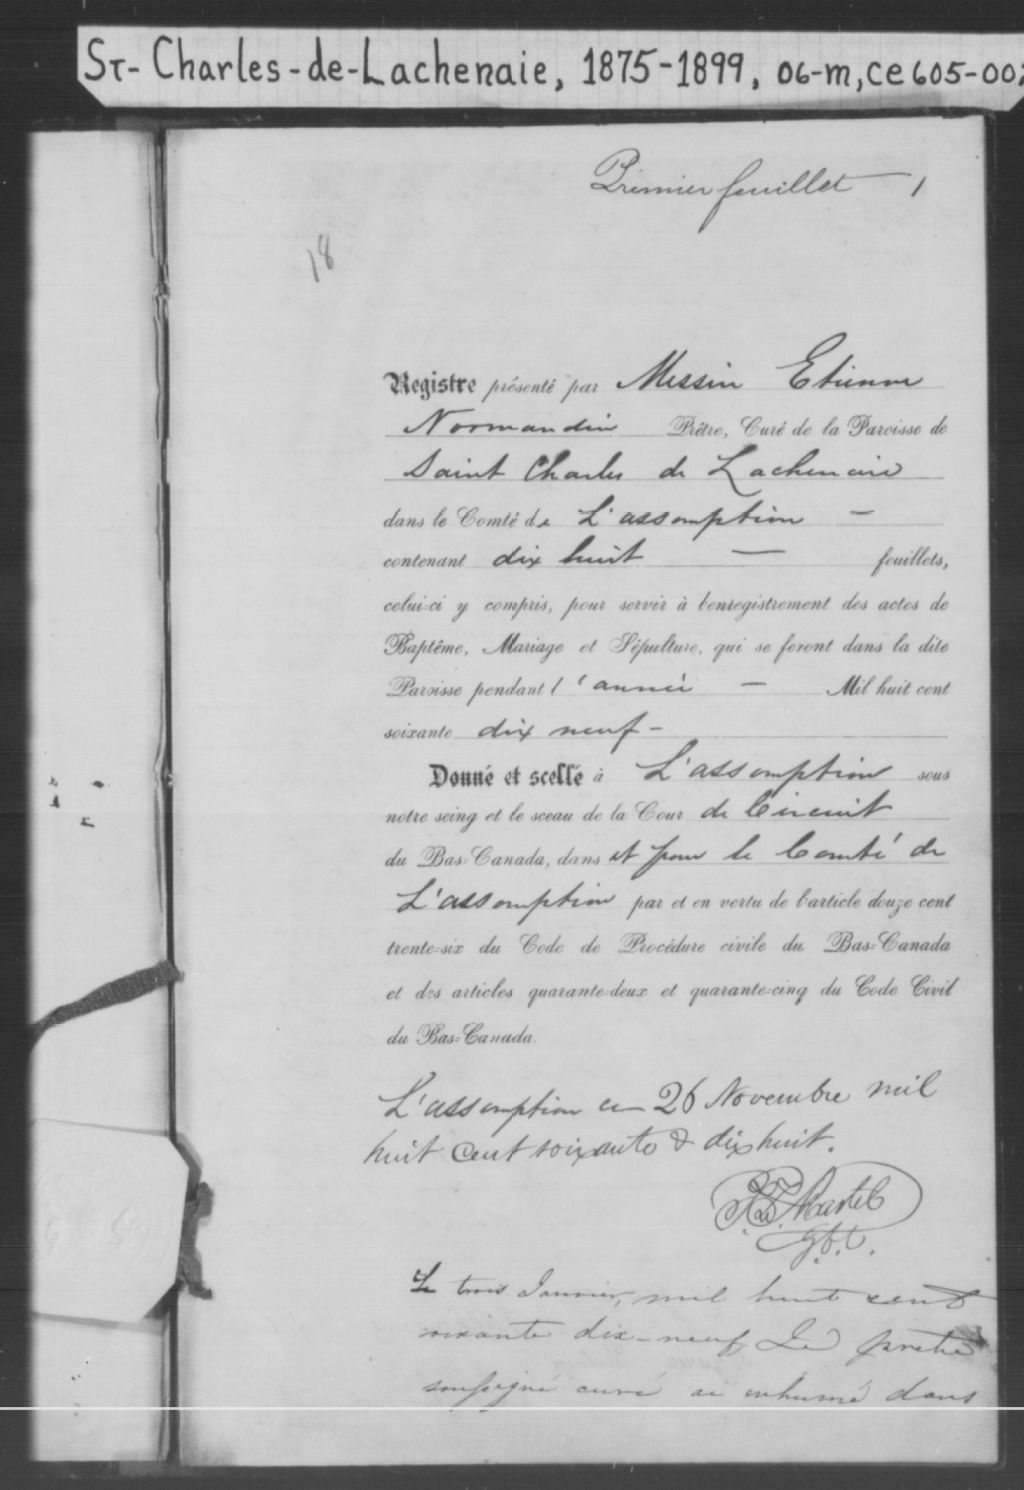 St-Charles-de-Lachenaie, 1875-1899, 06-m, ce605-00
Premier feuillet 1
18
Registre présenté par Messire Etienne
Normandin Prêtre, Curé de la Paroisse de
Saint Charles de Lachenaie
dans le Comté de L'assomption —
contenant dix huit — feuillets,
celui-ci y compris, pour servir à l'enregistrement des actes de
Baptême, Mariage et Sépulture, qui se feront dans la dite
Paroisse pendant l'année — Mil huit cent
soixante dix neuf -
Donné et scellé à L'assomption sous
notre seing et le sceau de la Cour de Circuit
du Bas-Canada, dans et pour le Comté de
L'assomption par et en vertu de l'article douze cent
trente-six du Code de Procédure civile du Bas-Canada
et des articles quarante-deux et quarante-cinq du Code Civil
du Bas-Canada.
L'assomption ce 26 Novembre mil
huit cent soixante & dix huit.
Martel
Le trois Janvier, mil huit cent
soixante dix-neuf, Le prêtre
soussigné curé ai inhumé dans